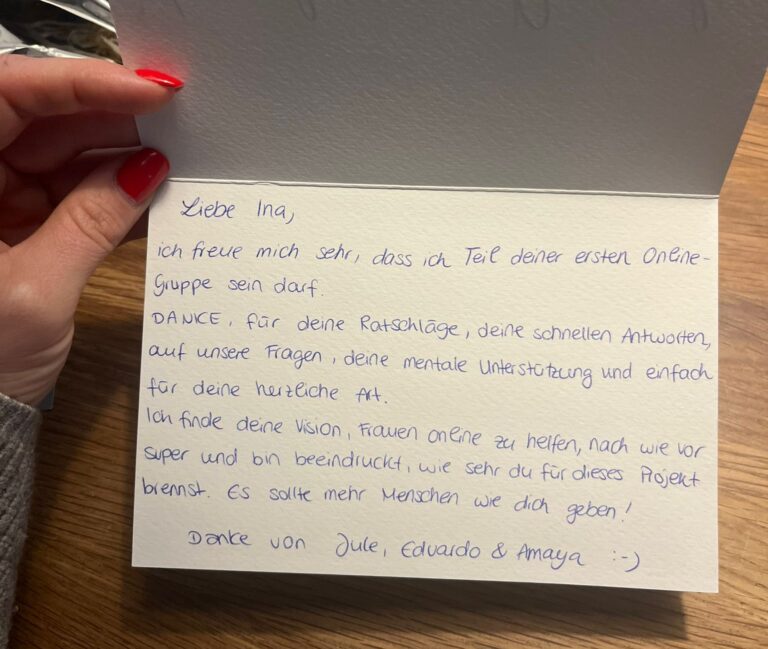 Liebe Ina,
ich freue mich sehr, dass ich Teil deiner ersten Online-
Gruppe sein darf.
DANKE, für deine Ratschläge, deine schnellen Antworten,
auf unsere Fragen, deine mentale Unterstützung und einfach
für deine herzliche Art.
Ich finde deine Vision, Frauen online zu helfen, nach wie vor
super und bin beeindruckt, wie sehr du für dieses Projekt
brennst. Es sollte mehr Menschen wie dich geben!
Danke von Jule, Eduardo & Amaya :-)